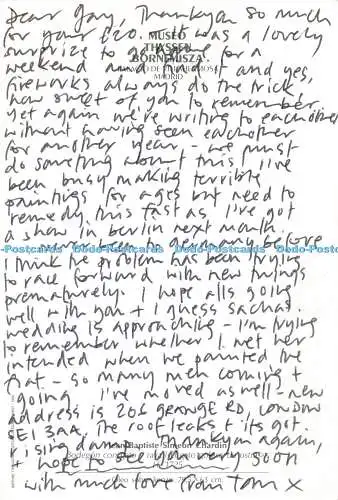 Dear Gay, Thankyou so much
for your £20. It was a lovely
surprise to go home for a
weekend and find it and yes,
fireworks always do the trick,
how sweet of you to remember.
yet again we're writing to eachother
without having seen eachother
for another year - we must
do something about this! I've
been busy making terrible
paintings for ages but need to
remedy this fast as I've got
a show in berlin next month.
before
I think the problem has been trying
to race forward with new things
prematurely. I hope alls going
well with you + I guess sachas.
wedding is approaching - I'm trying
to remember whether I met her
intended when we painted the
flat - so many men coming +
going! I've moved as well - new
address is 206 george RD, LONDON
SE1 3AA. The roof leaks + its got
rising damp. Thankyou again,
+ hope to see you very soon
with much love from Tom x
MUSEO
THYSSEN-
BORNEMISZA
MADRID
Dodo-Postcards Dodo-Postcards Dodo-Postcards Dodo-Postcards
Jean-Baptiste-Siméon Chardin